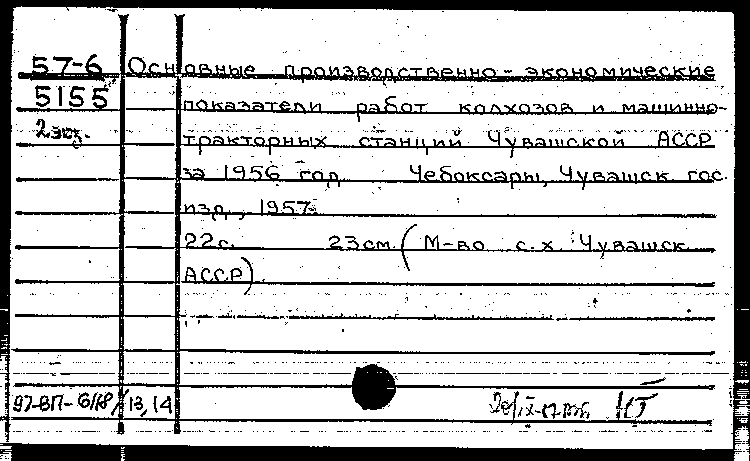 57-6 Основные производственно-экономические
5155 показатели работ колхозов и машинно-
2 экз. тракторных станций Чувашской АССР
за 1956 год Чебоксары, Чувашск гос.
изд, 1957.
22с. 23см. (М-во с.х. Чувашск
АССР)
13, 14